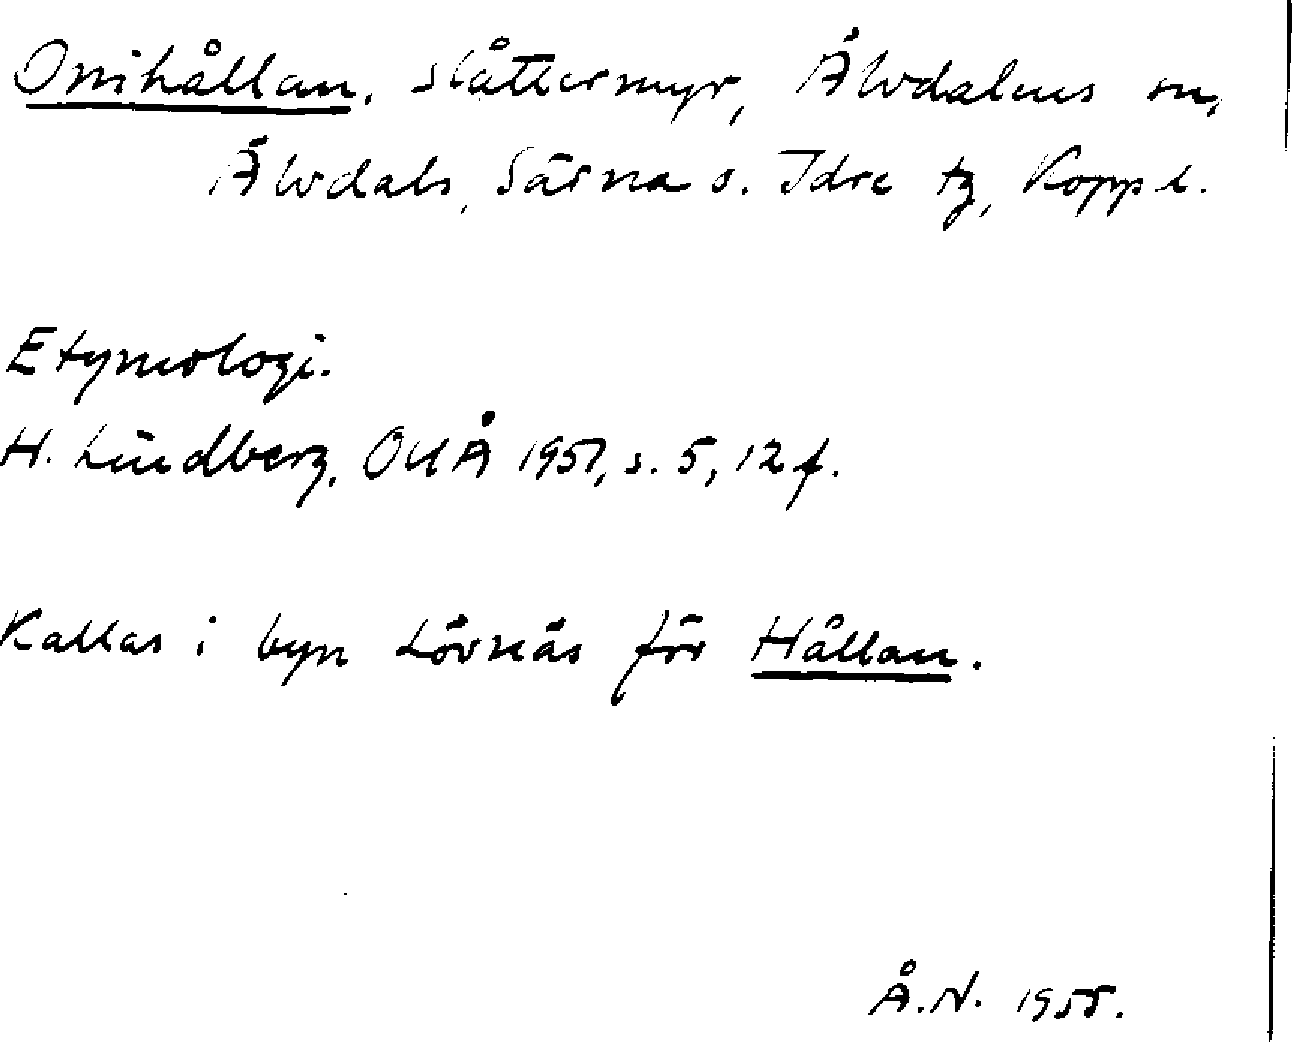 Onihållan, slåttermyr, Älvdalens sn,
Älvdals, Särna o. Idre tg, Kopp l.
Etymologi.
H. Lindberg, OUÅ 1951, s. 5, 12 f.
Kallas i byn Lövnäs för Hållan.
Å.N. 1955.